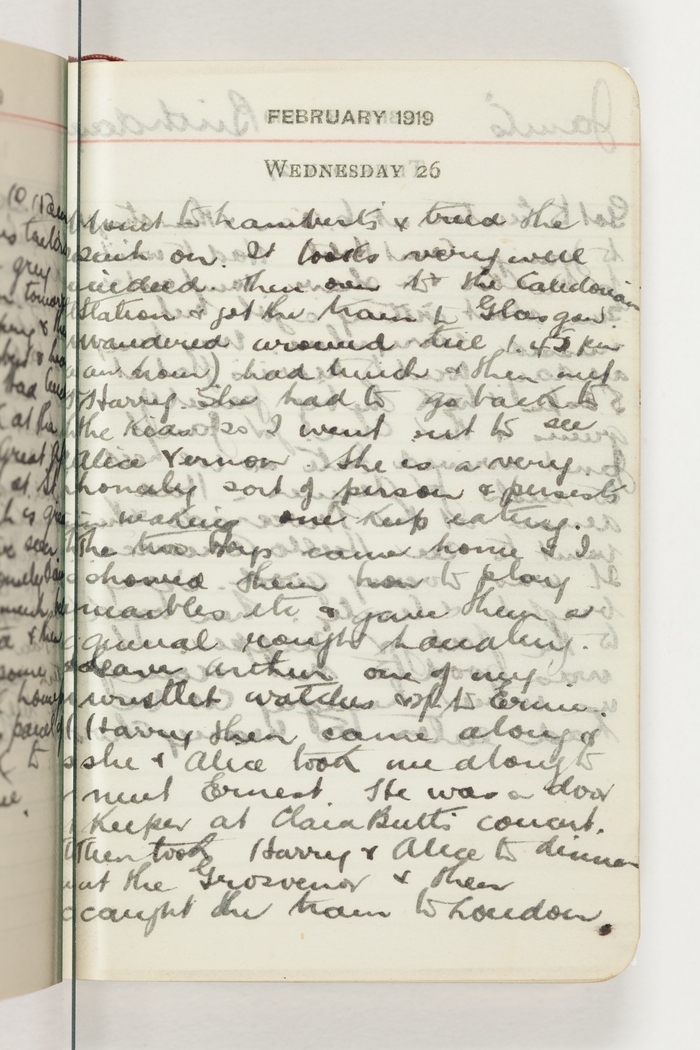 FEBRUARY 1919
WEDNESDAY 26
Went to Lambert's & tried the
suit on. It looks very well
indeed. then over to the Caledonian
Station & got the train to Glasgow.
Wandered around till 1.45 pm
(an hour) had lunch & then met
Harry. She had to go back to
the Kids so I went out to see
Alice Vernon. She is a very
homely sort of person & persists
in making one keep eating.
The two boys came home & I
showed them how to play
marbles etc & gave them a
general rough handling.
Gave Arthur one of my
wristlet watches & to Ernie.
Harry then came along &
she & Alice took me along to
meet Ernest. He was a door
keeper at Clara Butt's concert.
Then took Harry & Alice to dinner
at the Grosvenor & then
caught the train to London.